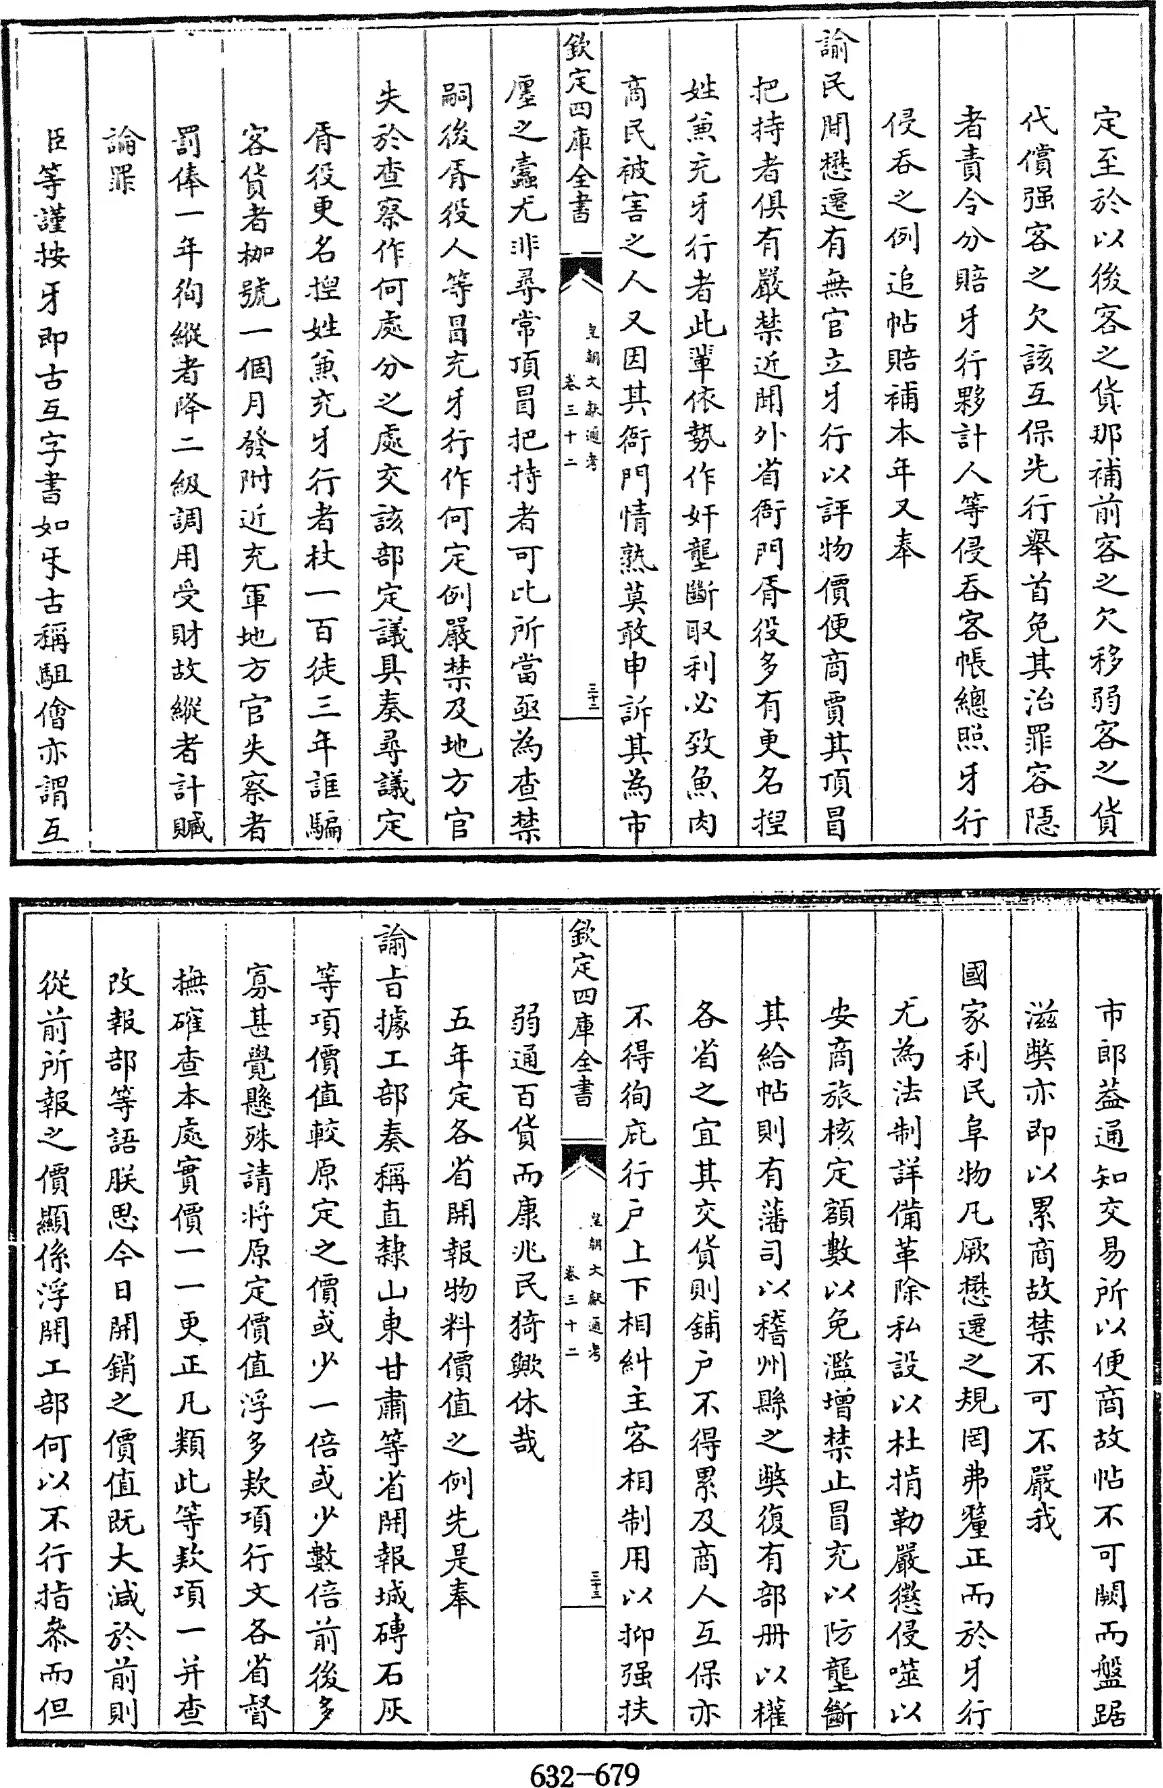 定至於以後客之貨那補前客之欠移弱客之貨
代償强客之欠該互保先行舉首免其治罪容隱
者責令分賠牙行夥計人等侵吞客帳總照牙行
侵吞之例追帖賠補本年又奉
諭民間懋遷有無官立牙行以評物價便商賈其頂冒
把持者俱有嚴禁近聞外省衙門胥役多有更名捏
姓兼充牙行者此輩依勢作奸壟斷取利必致魚肉
商民被害之人又因其衙門情熟莫敢申訴其為市
欽定四庫全書
皇朝文獻通考
卷三十二
三十二
廛之蠧尤非尋常頂冒把持者可比所當亟為查禁
嗣後胥役人等冒充牙行作何定例嚴禁及地方官
失於查察作何處分之處交該部定議具奏尋議定
胥役更名捏姓兼充牙行者杖一百徒三年誆騙
客貨者枷號一個月發附近充軍地方官失察者
罰俸一年徇縱者降二級調用受財故縱者計贓
論罪
臣等謹按牙即古互字書如㸦古稱駔儈亦謂互
市郎葢通知交易所以便商故帖不可闕而盤踞
滋獘亦即以累商故禁不可不嚴我
國家利民阜物凡厥懋遷之規罔弗釐正而於牙行
尤為法制詳備革除私設以杜掯勒嚴懲侵噬以
安商旅核定額數以免濫增禁止冒充以防壟斷
其給帖則有藩司以稽州縣之獘復有部册以權
各省之宜其交貨則舖户不得累及商人互保亦
不得徇庇行户上下相糾主客相制用以抑强扶
欽定四庫全書
皇朝文獻通考
卷三十二
三十三
弱通百貨而康兆民猗歟休哉
五年定各省開報物料價值之例先是奉
諭旨據工部奏稱直隸山東甘肅等省開報城磚石灰
等項價值較原定之價或少一倍或少數倍前後多
寡甚覺懸殊請將原定價值浮多款項行文各省督
撫確查本處實價一一更正凡類此等款項一并查
改報部等語朕思今日開銷之價值既大減於前則
從前所報之價顯係浮開工部何以不行指叅而但
632-679